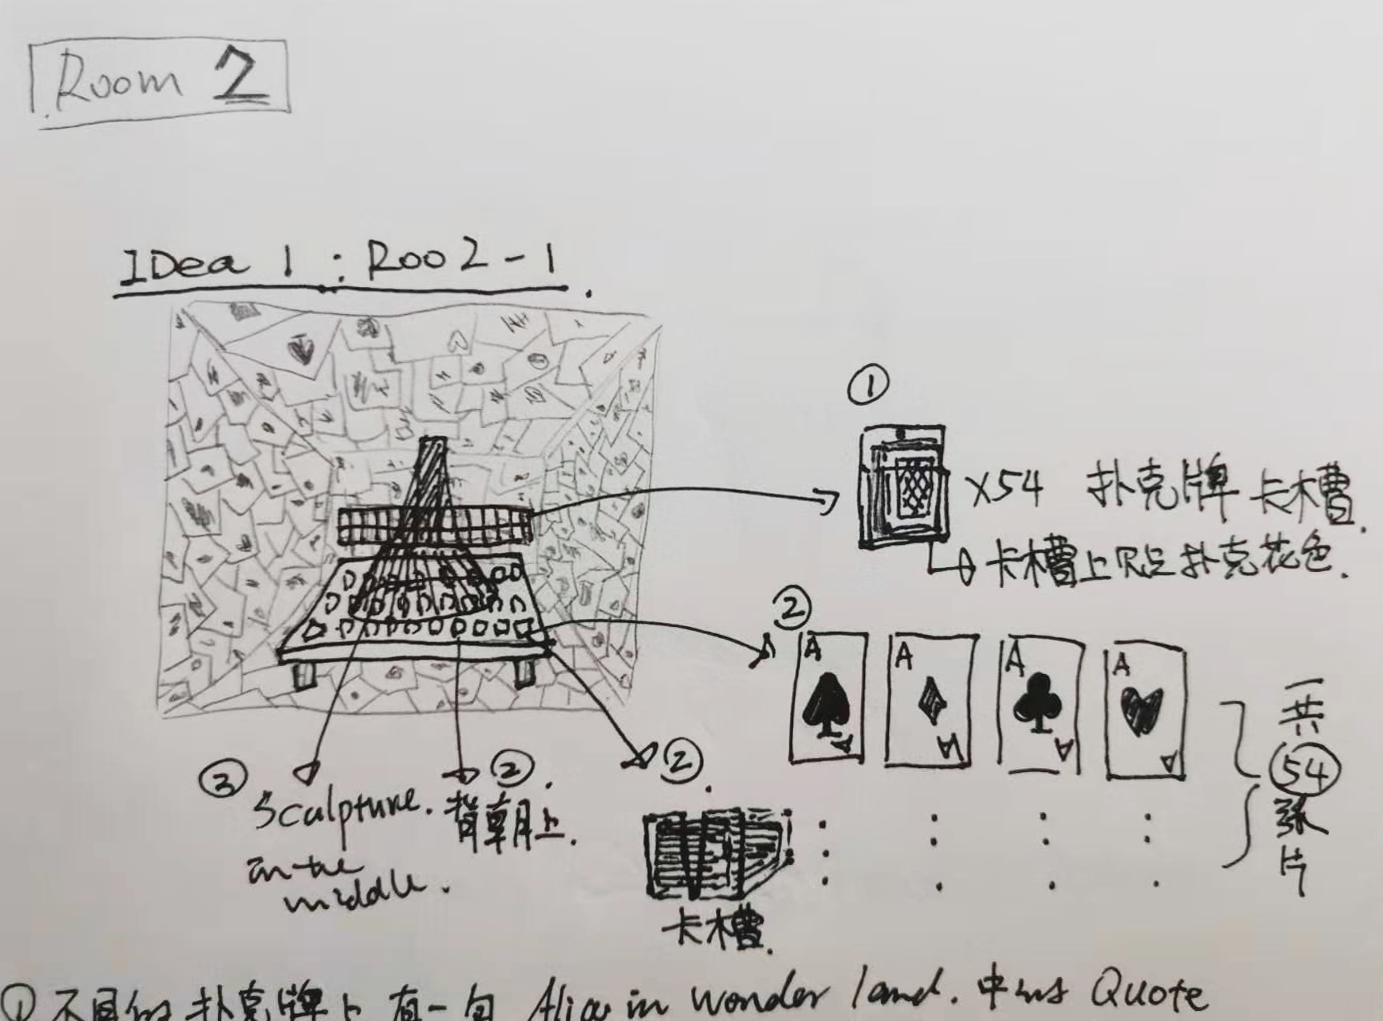 Room 2
IDea 1 : Roo 2-1 .
①
X54 扑克牌 卡槽.
卡槽上只是扑克花色.
②
A A A A
A A A A
一共
54
张
片
③ Sculpture.
in the
middle.
②.
背朝上.
②.
卡槽.
① 不同的 扑克牌上 有一句 Alice in wonder land. 中的 Quote